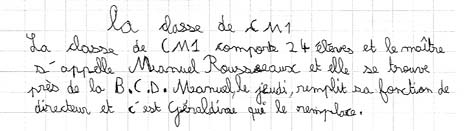 la classe de CM1
La classe de CM1 comporte 24 élèves et le maître
s'appelle Manuel Rousseaux et elle se trouve
près de la B.C.D. Manuel, le jeudi, remplit sa fonction de
directeur et c'est Géraldine qui le remplace.